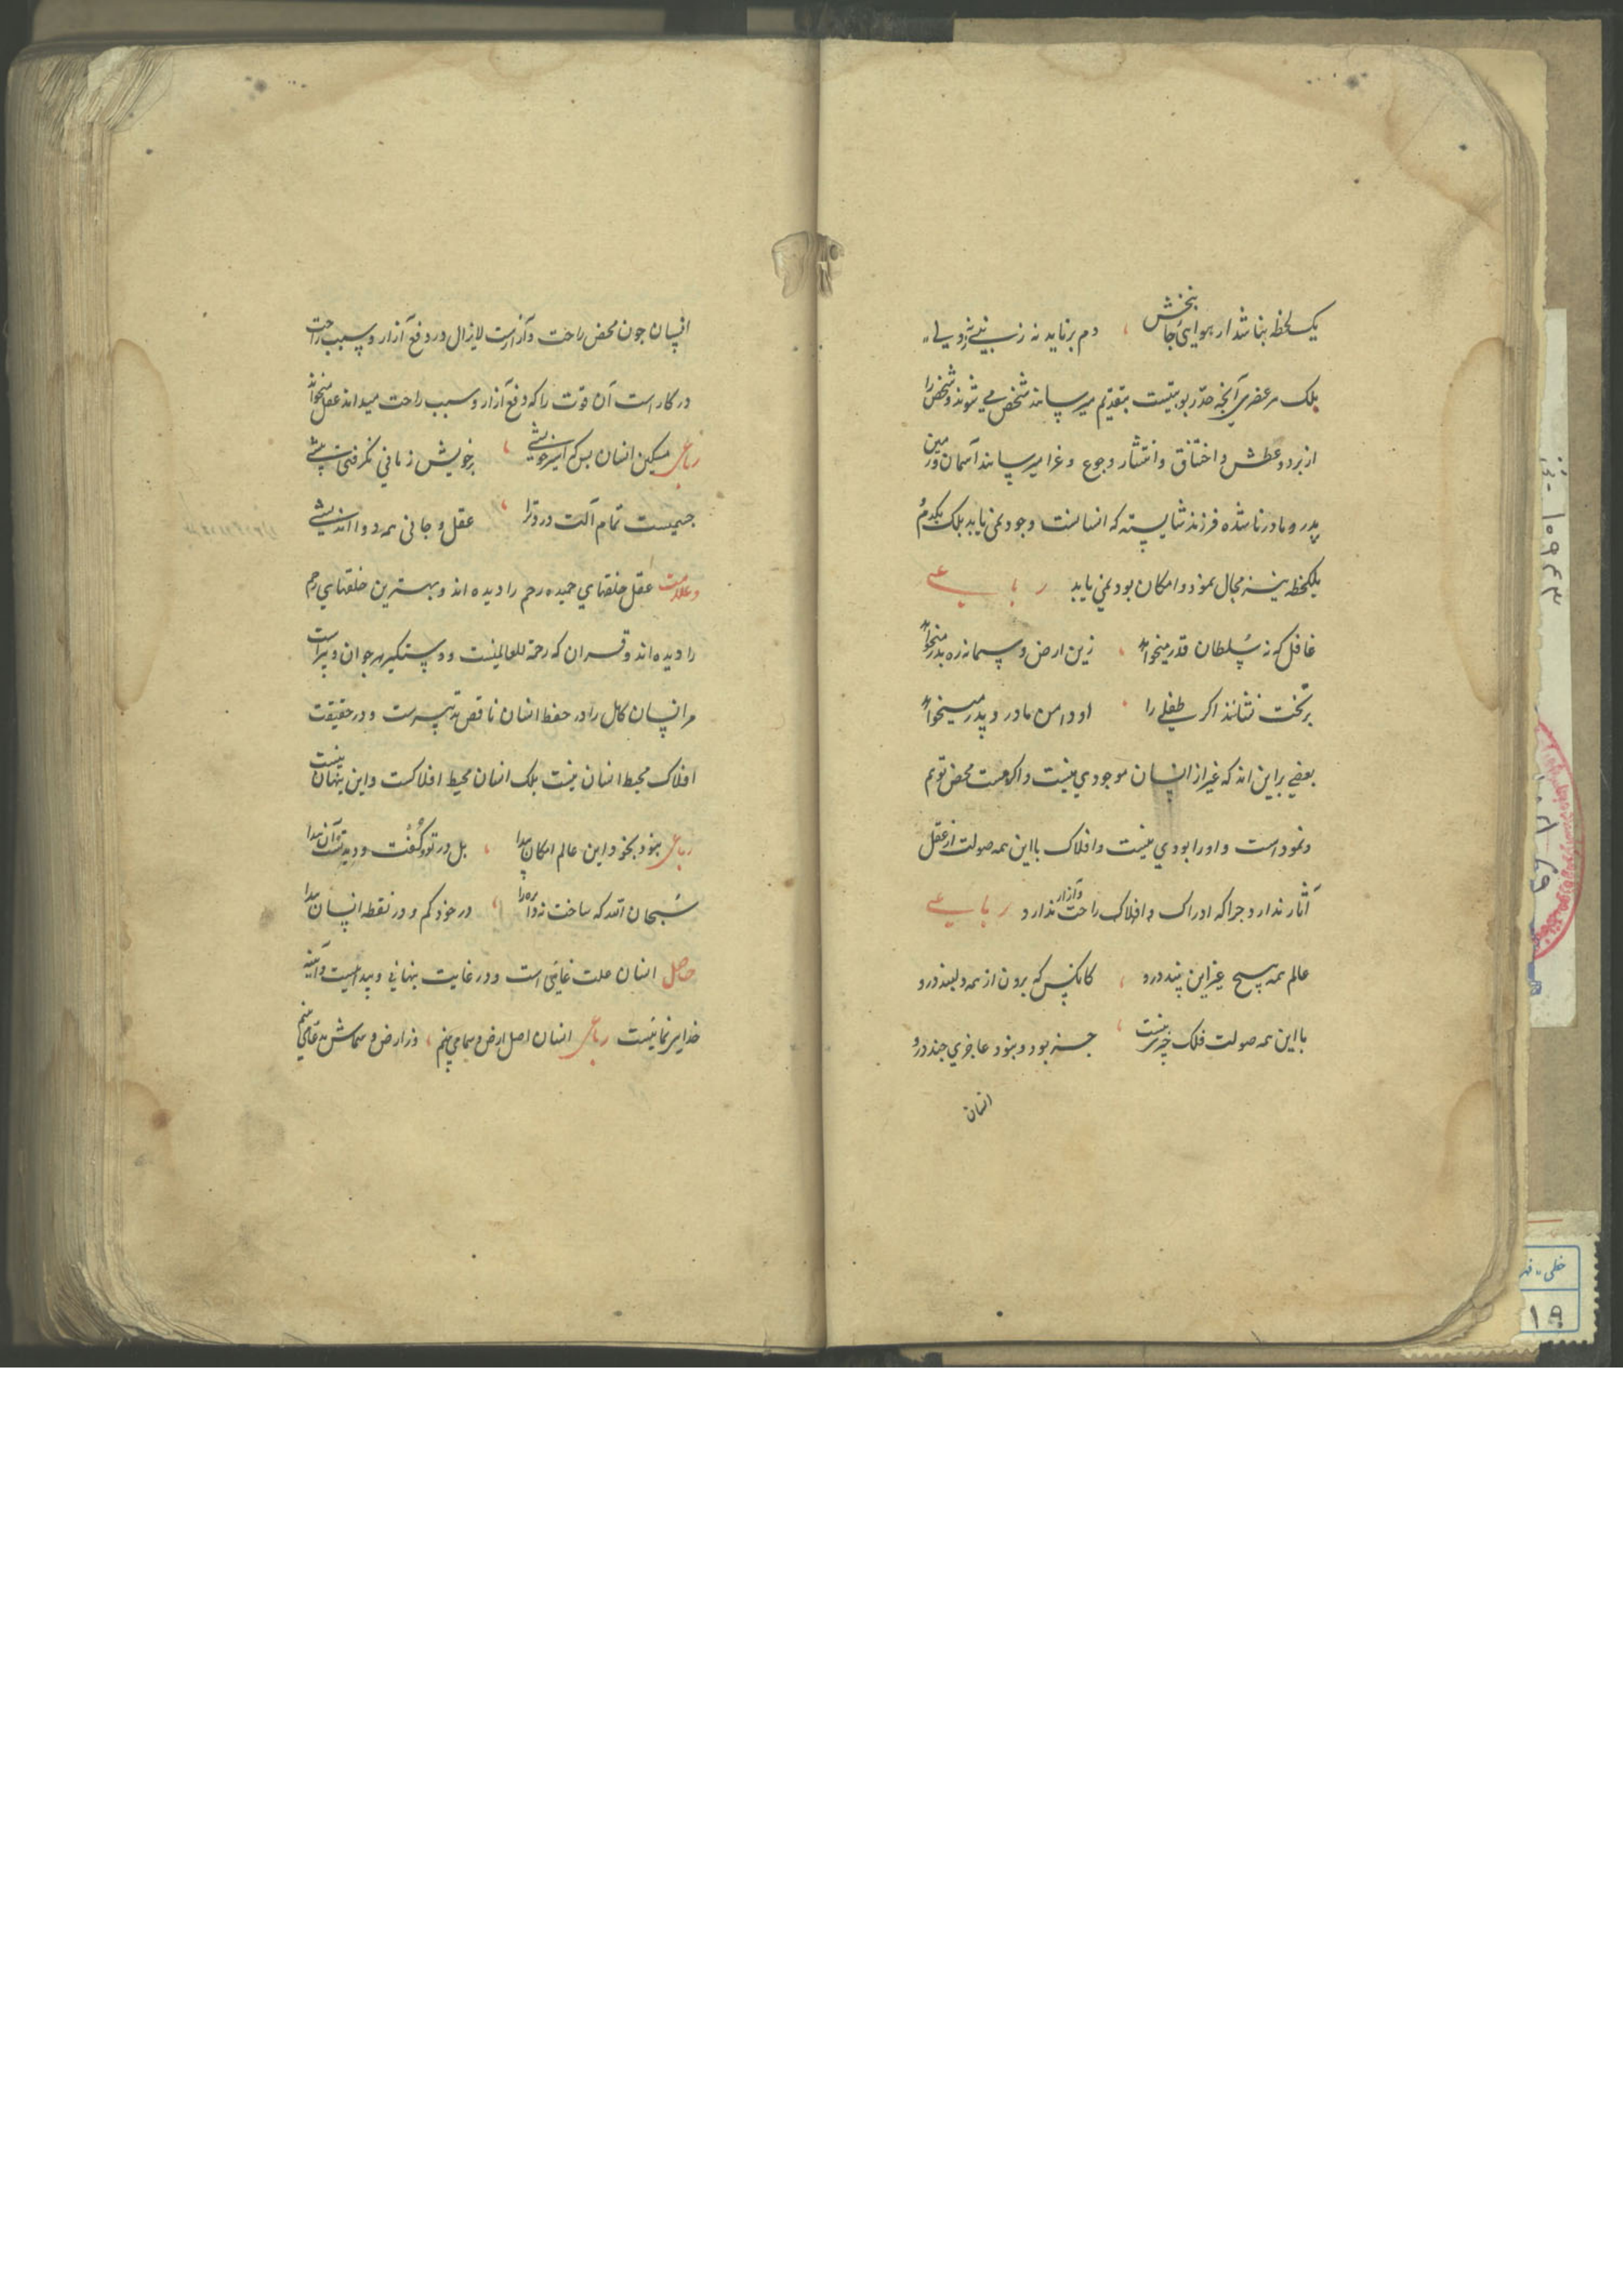 یک لحظه نباشد ار هوایی جا بخش ، دم برناید نه ز نبی نه ز ولی
بلک هر عضری آنچه حق ربوبیتست بتقدیم میرساند شخص می شوند و شخص را
از برد و عطش و اختناق و انتشار و جوع و غرا میرساند آسمان و زمین
پدر و مادر ناشده فرزند شایسته که انسانست وجود نمی یابد بلک یکدم
یلکحظه نیز مجال نمود و امکان بود نمی یابد رباعی
غافل که نه سلطان قدر میخواهد ، زین ارض و سما نه ره بدر میخواهد
بر تخت نشانند اکر طفلی را ، او دامن مادر و پدر میخواهد
بعضی براین اند که غیر از انسان موجودی نیست و اکر هست محض توهم
و نمود است و اورا بودی نیست و افلاک با این همه صولت از عقل
آثار ندارد جرا که ادراک و افلاک راحت و آزار ندارد رباعی
عالم همه هیچ غیر این پند درو ، کانکس که برون از همه دیدند درو
با این همه صولت فلک چیزی نیست ، جز بود و نبود عاجزی جند درو
انسان
انسان جون محض راحت و آزارست لایزال در دفع آزار و سبب راحت
در کار است آن قوت را که دفع آزار و سبب راحت میداند عقل میخواند
رباعی مسکین انسان بس که اسیر خویشی ، بر خویش زمانی نکرفتی پیشی
جسمیست تمام آلت درد ترا ، عقل و جانی همه دوا اندیشی
وعلامت عقل خلقهای حمیده رحم را دیده اند و بهترین خلقهای رحم
را دیده اند و قران که رحمة للعالمینست و دستکیر هر جوان و پیر است
مر انسان کامل را در حفظ انسان ناقص تدبیرست و در حقیقت
افلاک محیط انسان نیست بلک انسان محیط افلاکست و این پنهان نیست
رباعی نبود بخود این عالم امکان پیدا ، بل در تو و کفت و دید تست آن پیدا
سبحان الله که ساخت نه دایره را ، در خود کم و در نقطه انسان پیدا
حاصل انسان علت غائی است و در غایت پنهانی و پیداییست و آینه
خدای نمائیست رباعی انسان اصل ارض و سما می بینم ، وز ارض و سماش مدعا می بینم